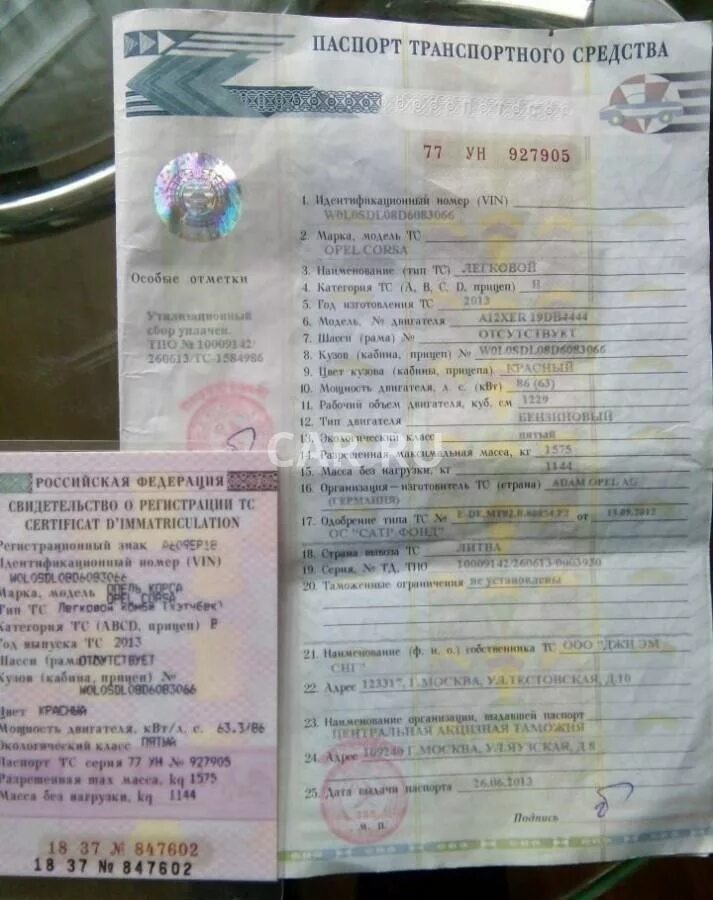 ПАСПОРТ ТРАНСПОРТНОГО СРЕДСТВА
77 УН 927905
1. Идентификационный номер (VIN)
W0L0SDL08D6083066
2. Марка, модель ТС
OPEL CORSA
3. Наименование (тип ТС) ЛЕГКОВОЙ
4. Категория ТС (А, В, С, D, прицеп) В
5. Год изготовления ТС 2013
6. Модель, № двигателя A12XER 19DB4444
7. Шасси (рама) № ОТСУТСТВУЕТ
8. Кузов (кабина, прицеп) № W0L0SDL08D6083066
9. Цвет кузова (кабины, прицепа) КРАСНЫЙ
10. Мощность двигателя, л. с. (кВт) 86 (63)
11. Рабочий объем двигателя, куб. см 1229
12. Тип двигателя БЕНЗИНОВЫЙ
13. Экологический класс пятый
14. Разрешенная максимальная масса, кг 1575
15. Масса без нагрузки, кг 1144
16. Организация-изготовитель ТС (страна) ADAM OPEL AG
(ГЕРМАНИЯ)
17. Одобрение типа ТС № от
ОС "САТР-ФОНД"
18. Страна вывоза ТС ЛИТВА
19. Серия, № ТД, ТПО 10009142/260613/0003930
20. Таможенные ограничения не установлены
21. Наименование (ф. и. о.) собственника ТС ООО "ДЖИ ЭМ
СНГ"
22. Адрес 123317, Г.МОСКВА, УЛ.ТЕСТОВСКАЯ, Д.10
23. Наименование организации, выдавшей паспорт
ЦЕНТРАЛЬНАЯ АКЦИЗНАЯ ТАМОЖНЯ
24. Адрес 109240 Г.МОСКВА, УЛ.ЯУЗСКАЯ, Д.8
25. Дата выдачи паспорта 26.06.2013
М. П.
Подпись
Особые отметки
Утилизационный
сбор уплачен.
ТПО № 10009142/
260613/ТС-1584986
CAR.RU
РОССИЙСКАЯ ФЕДЕРАЦИЯ
СВИДЕТЕЛЬСТВО О РЕГИСТРАЦИИ ТС
CERTIFICAT D'IMMATRICULATION
Регистрационный знак
Идентификационный номер (VIN)
W0L0SDL08D6083066
Марка, модель ОПЕЛЬ КОРСА
OPEL CORSA
Тип ТС Легковой комби (хэтчбек)
Категория ТС (ABCD, прицеп) В
Год выпуска ТС 2013
Шасси (рама) ОТСУТСТВУЕТ
Кузов (кабина, прицеп) №
W0L0SDL08D6083066
Цвет КРАСНЫЙ
Мощность двигателя, кВт/л. с. 63.3/86
Экологический класс ПЯТЫЙ
Паспорт ТС серия 77 УН № 927905
Разрешенная max масса, kg 1575
Масса без нагрузки, kg 1144
18 37 № 847602
18 37 № 847602